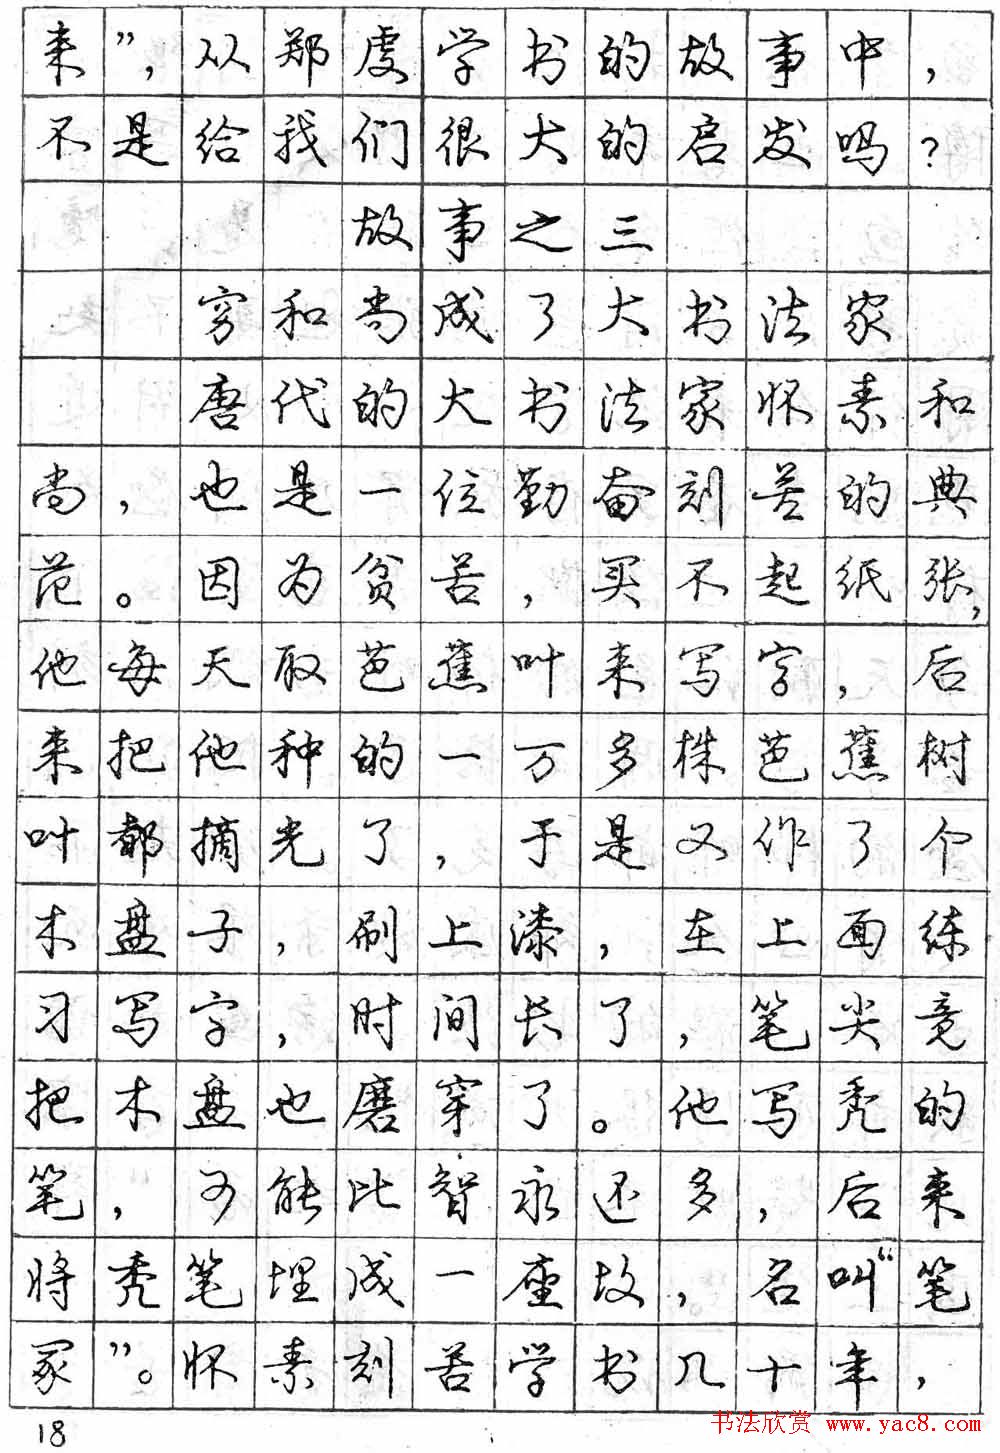 来”，从郑虔学书的故事中，
不是给我们很大的启发吗？
故事之三
穷和尚成了大书法家
唐代的大书法家怀素和
尚，也是一位勤奋刻苦的典
范。因为贫苦，买不起纸张，
他每天取芭蕉叶来写字，后
来把他种的一万多株芭蕉树
叶都摘光了，于是又作了个
木盘子，刷上漆，在上面练
习写字，时间长了，笔尖竟
把木盘也磨穿了。他写秃的
笔，可能比智永还多，后来
将秃笔埋成一座故，名叫“笔
冢”。怀素刻苦学书几十年，
18
书法欣赏 www.yac8.com